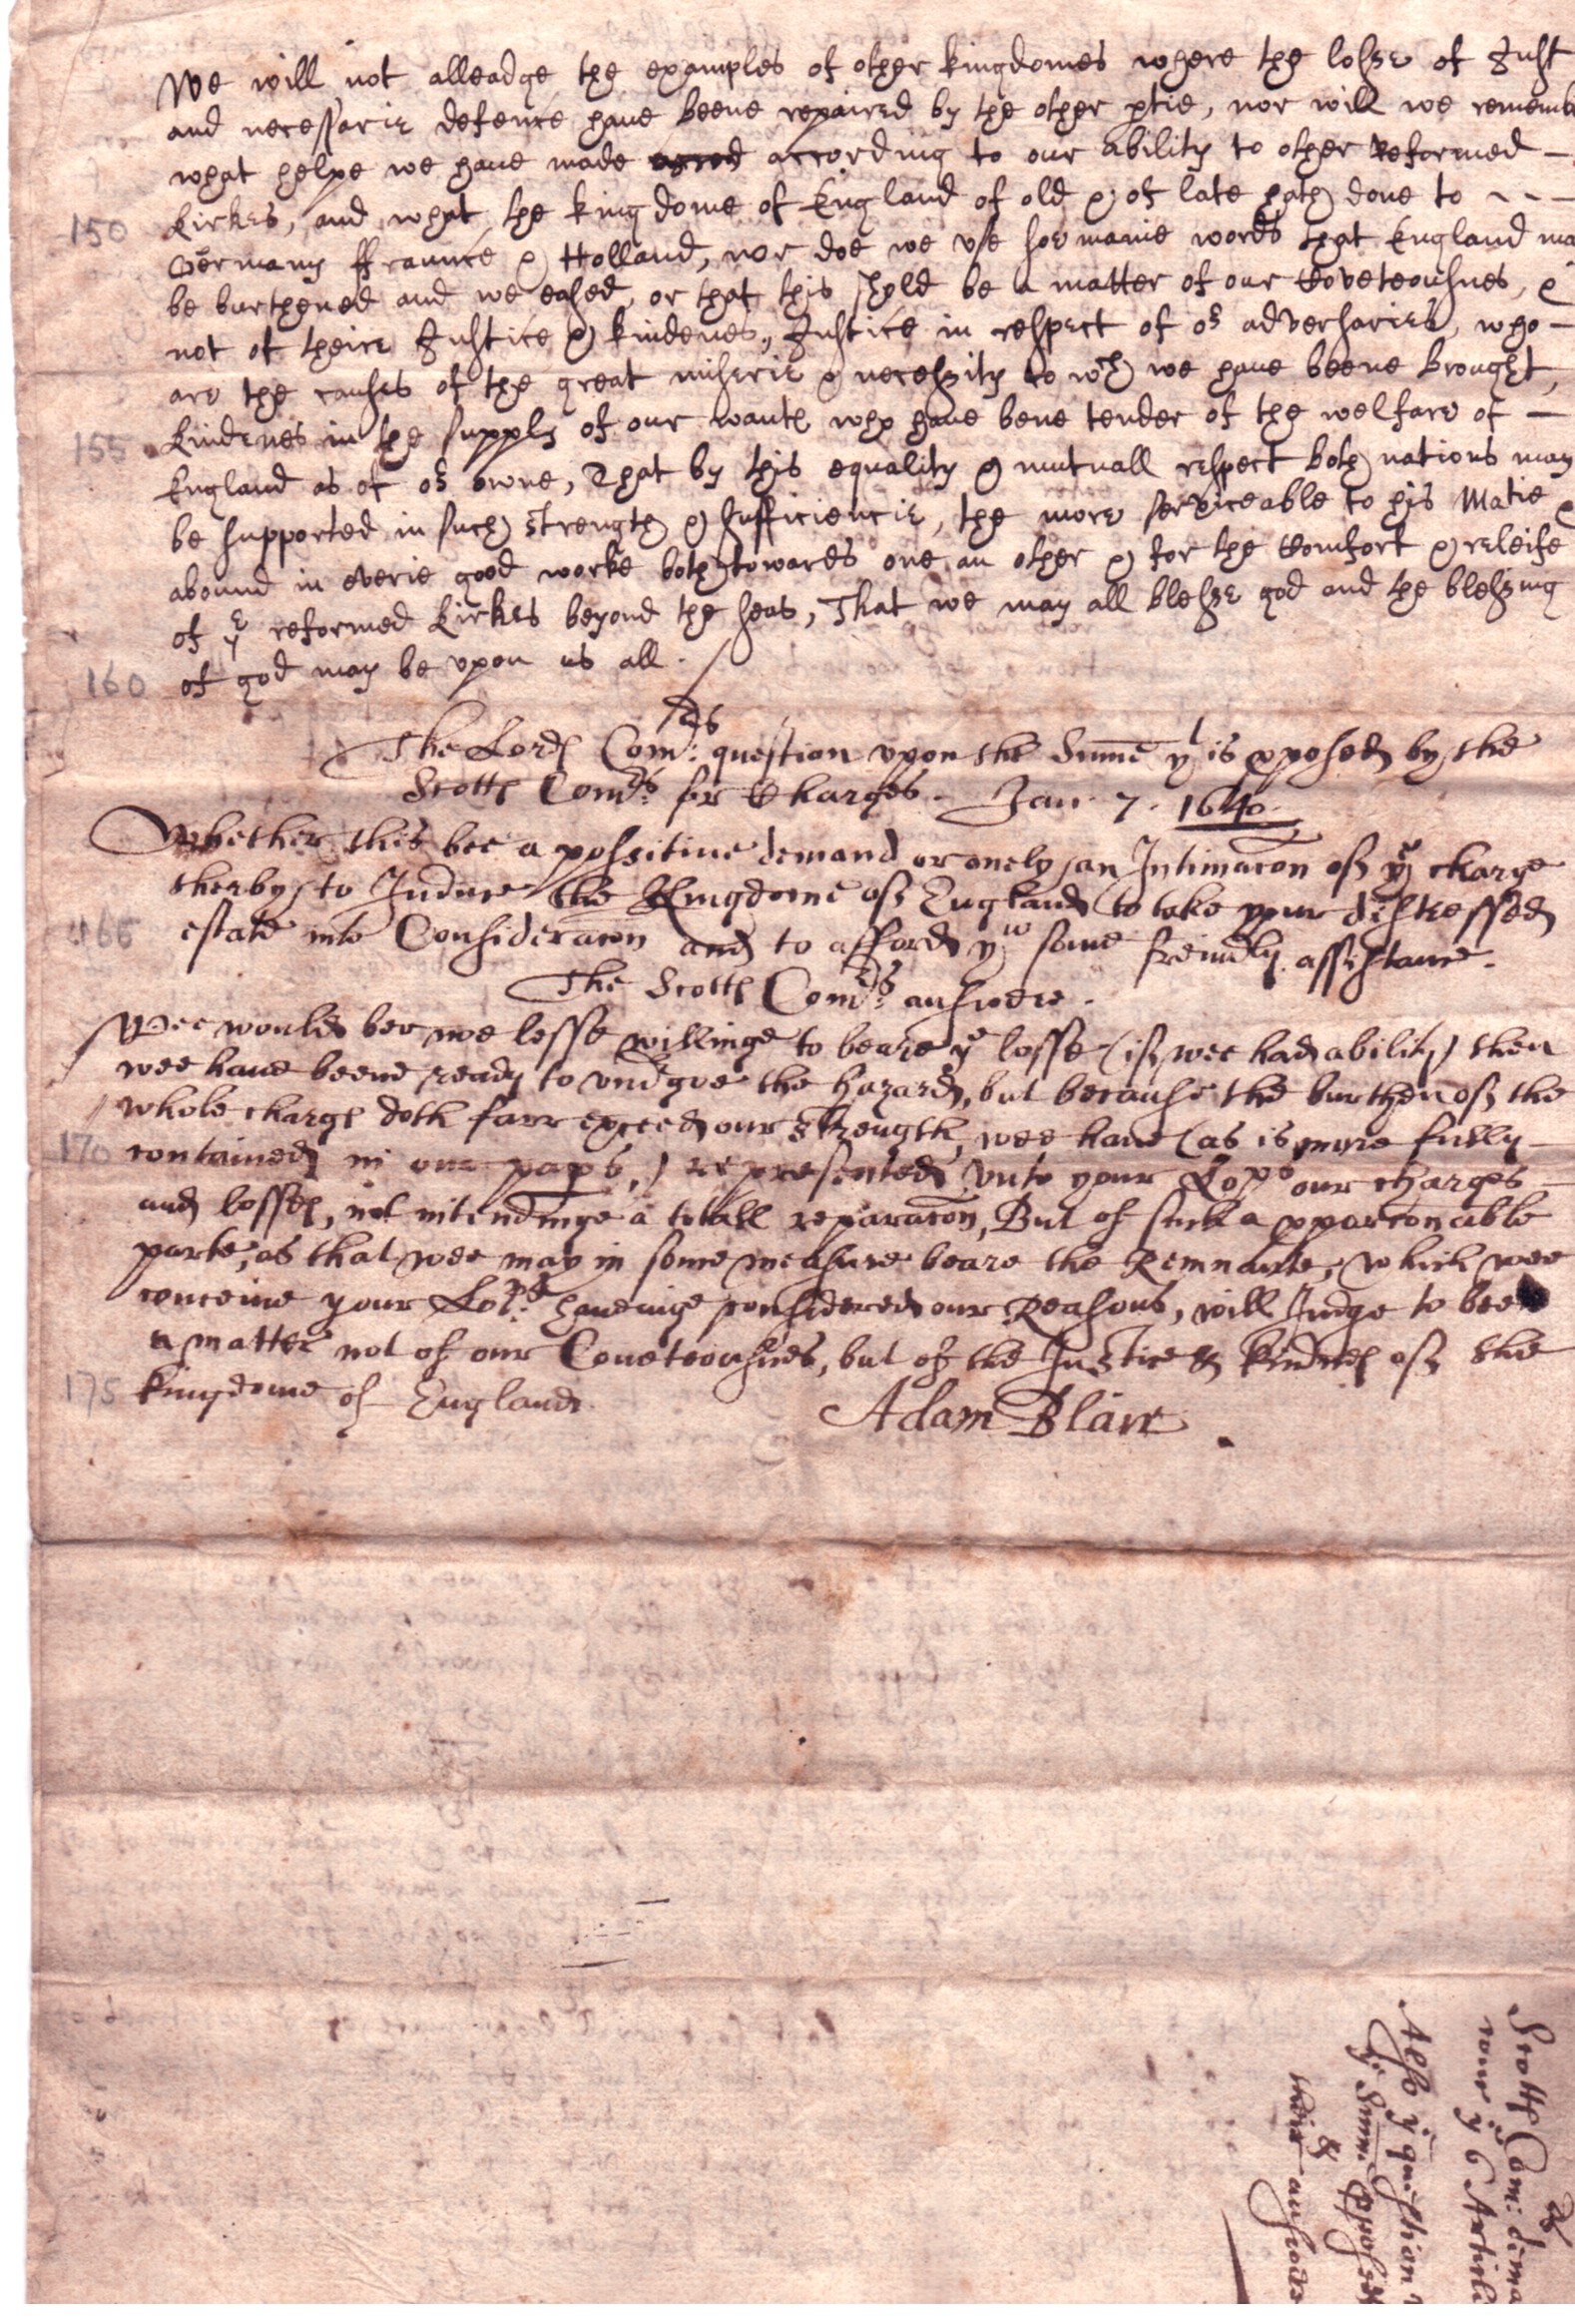 We will not alleadge the examples of other kingdomes where the losse of Just
and necessarie defence have beene repaired by the other ptie, nor will we rememb
what helpe we have made according to our ability to other Reformed —
150 kirkes, and what the kingdome of England of old & of late hath done to - - -
Germany ffraunce & Holland, nor doe we use soe manie words that England ma
be burthened and we eased, or that this shold be a matter of our Coveteousnes, &
not of theire Justice & kindenes, Justice in respect of or adversaries, who —
are the causes of the great miserie & necessity to wch we have beene brought,
155 kindenes in the supply of our wants who have bene tender of the welfare of —
England as of or owne, That by this equality & mutuall respect both nations may
be supported in such strength & sufficiencie, the more serviceable to his Matie &
abound in everie good worke both towards one an other & for the Comfort & releife
of ye reformed kirkes beyond the seas, That we may all blesse god and the blessing
160 of god may be upon us all.
The Lords Comrs: question upon the Summe yt is pposed by the
Scotts Comrs: for Charges. Jan. 7. 1640.
Whether this bee a possitiue demand or onely an Intimacon of ye charge
therby to Induce the Kingdome of England to take your distressed
165 estate into Consideracon and to afford you some freindly assistance.
The Scotts Comrs: answere.
Wee would bee noe lesse willinge to beare ye losse (if wee had ability) then
wee haue beene ready to undgoe the hazard, but because the burthen of the
whole charge doth farr exceed our strength, wee haue (as is more fully —
170 contained in our paps,) represented unto your Lopps our charges —
and losses, not intendinge a totall reparacon, But of such a pporconable
parte, as that wee may in some measure beare the Remnante, which wee
conceiue your Lopps: haueinge considered our Reasons, will Judge to bee
a matter not of our Coueteousnes, but of the Justice & kindnes of the
175 kingdome of England.
Adam Blair
Scotts Comrs: dema
ye 6 Article
Also ye question
ye Summe pposed
&
their answere